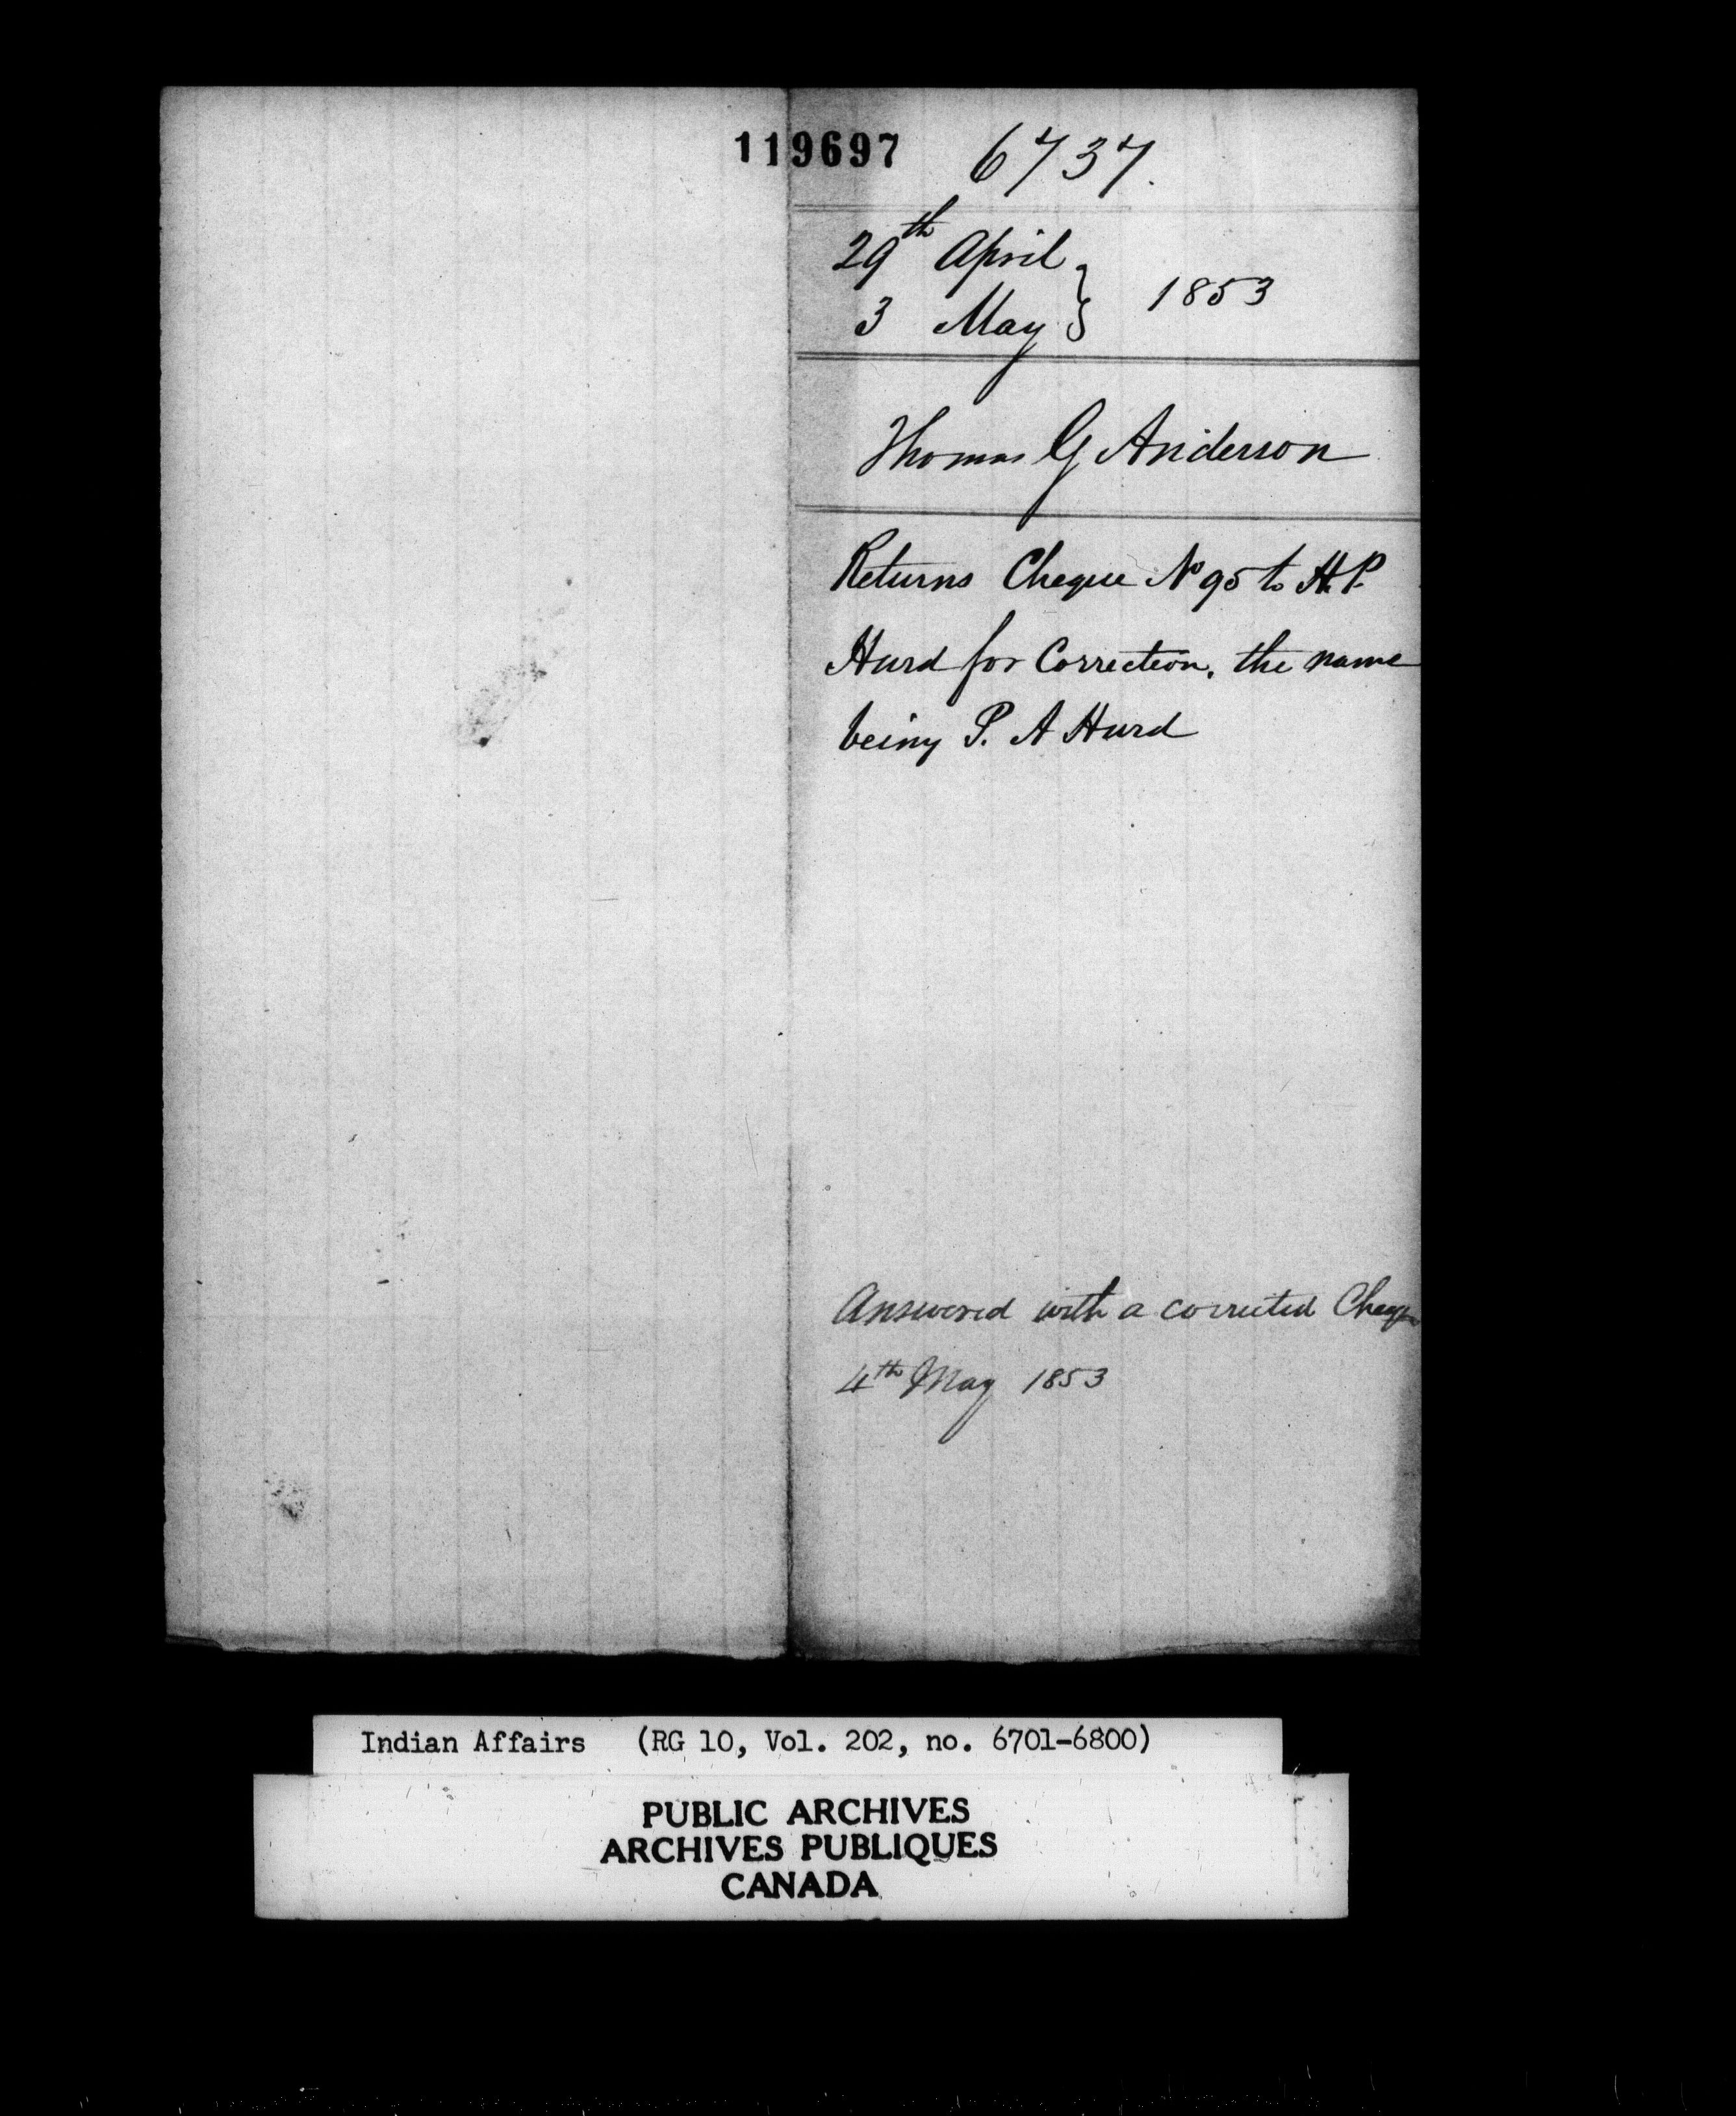 119697
6737.
29th April
3 May } 1853
Thomas G Anderson
Returns Cheque No 95 to H. P.
Hurd for Correction, the name
being P. A Hurd
Answered with a corrected Cheque
4th May 1853
Indian Affairs (RG 10, Vol. 202, no. 6701-6800)
PUBLIC ARCHIVES
ARCHIVES PUBLIQUES
CANADA